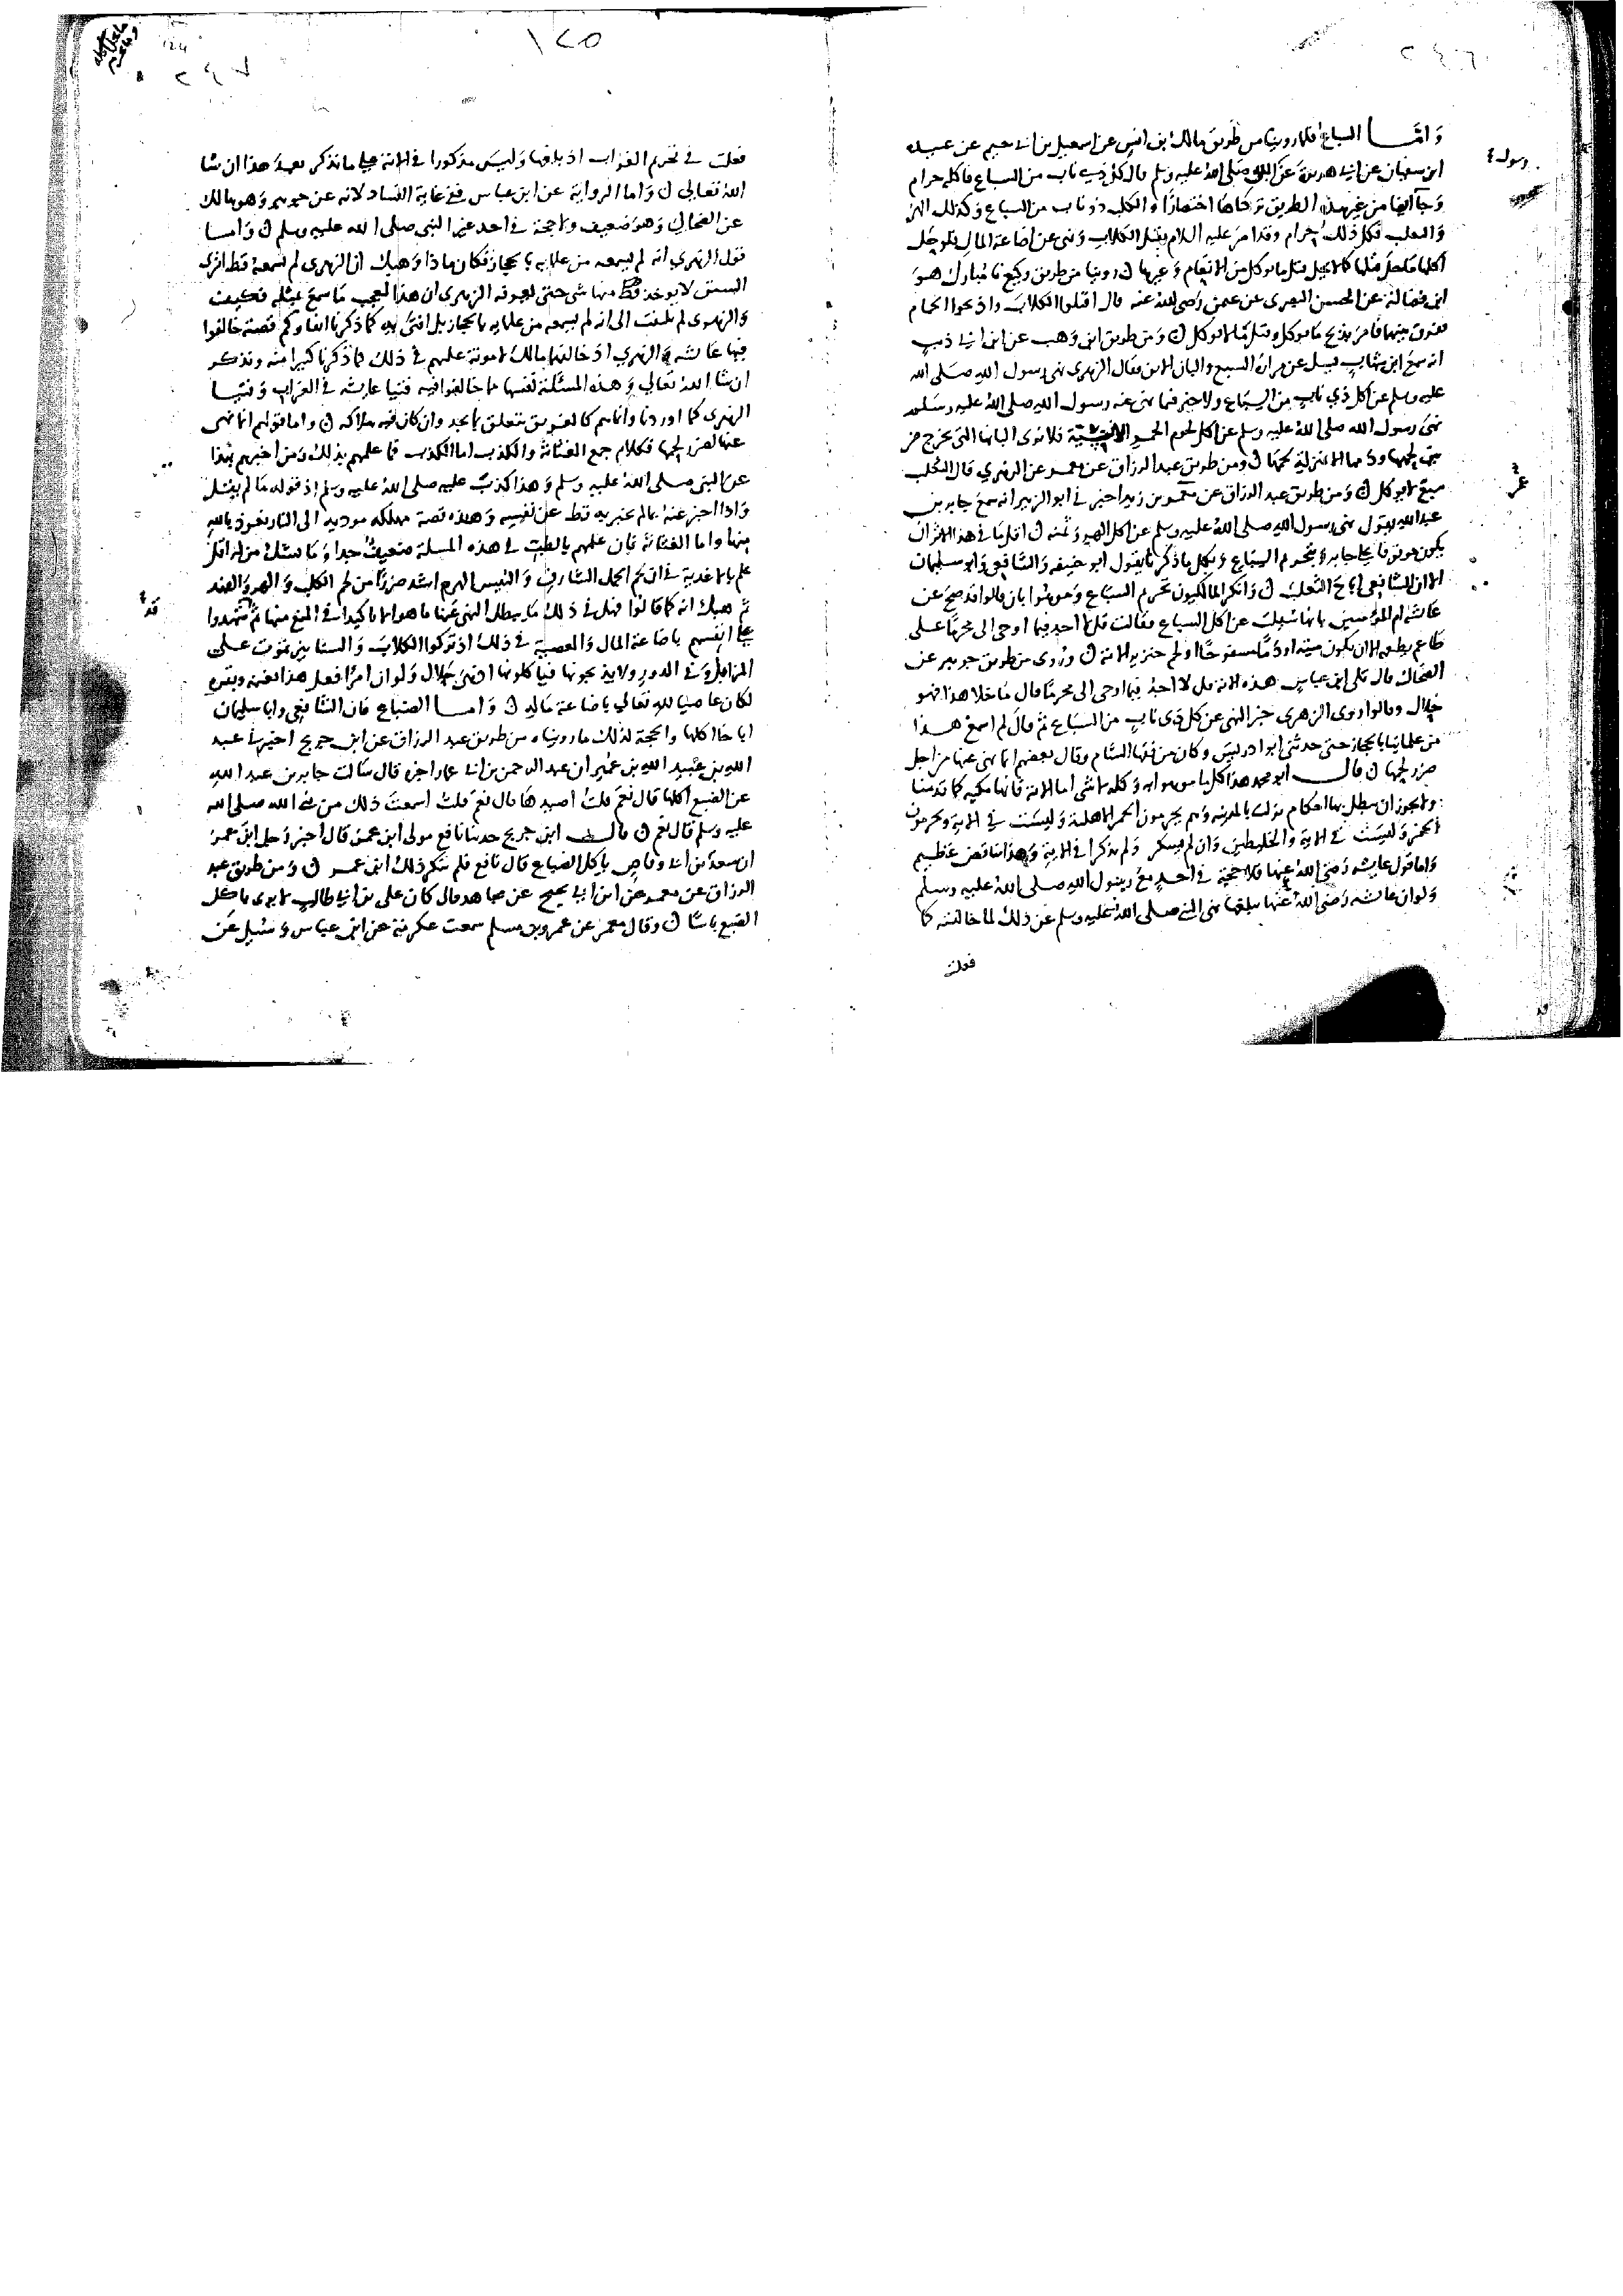 ٢٤٦
وَامَّا السباع فلما روينا من طريق مالك بن انس عن اسمعيل بن ابي حكيم عن عبيده
ابن سفيان عن ابي هريرة عن النبي صَلى اللهُ عليه وسلم قال كل ذي ناب من السباع فاكله حرام
وَجآ ايضا من غير هذه الطريق تركناها اختصارًا والكلب ذو ناب من السباع وكذلك الهر
وَالثعلب فكل ذلك حرام وقد امر عليه السلام بقتل الكلاب ونهى عن اضاعة المال فلو حَل
اكلها ما حل قتلها كما لا يحل قتل ما يوكل من الانعام وَغيرها ن روينا من طريق وكيع نا مُبارك هوَ
ابن فضالة عن الحسن البصرى عن عثمن رَضى اللهُ عنه قال اقتلوا الكلابَ واذبحوا الحمام
ففرق بينهما فامر بذبح ما يوكل وقتل ما لا يوكل ن وَمن طريق ابن وَهب عن ابن ابي ذيب
انه سمع ابن شهابٍ يسيل عن مرارة السبع والبان الاتن فقال الزهرى نهى رسول الله صَلى الله
عليه وسلم عن اكل ذي ناب من السباع ولا خير فيما نهى عنه رسول الله صلى اللهُ عليه وسَلم
نهىَ رسول الله صلى اللهُ عليه وسلم عن اكل لحوم الحمر الانسية فلا نرى البانها التى تخرج من
بين لحمها ودمها الا بمنزلة لحمها ن ومن طريق عبد الرزاق عن معمر عن الزهري قال الثعلب
سبع لا يوكل ن وَمن طريق عبد الرزاق عن عمر بن زيد اخبرني ابو الزبير انه سمع جابر بن
عبد الله يقول نهى رسول الله صلى اللهُ عليه وسلم عن اكل الهر وَثمنه ن اقل ما في هذا الاثر ان
يكون موقوفا على جابر وَبتحريم السباع وَبكل ما ذكرنا يقول ابو حنيفه وَالشافعى وَابو سليمان
الا ان الشافعي اباحَ الثعلبَ ن وَانكر المالكيون تحريم السباع وَموهوا بان قالوا قد صح عن
عائشه ام المؤمنين انها سُيلت عن اكل السباع فقالت قل لا اجد فيما اوحى الى محرمًا على
طاعم يطعمه الا ان يكون ميتة او دمًا مسفوحًا او لحم خنزير الاية ن وَروى من طريق جويبر عن
الضحاك قال تلى ابن عباس هذه الاية قل لا اجدُ فيما اوحى الى محرمًا قال مَا خلا هذا فهو
حلال وقالوا روى الزهرى خبر النهى عن كل ذى نابٍ من السباع ثم قال لم اسمع هذا
من علماينا بالحجاز حتى حدثنى ابو ادريس وكان من فقها الشام وقال بعضهم انما نهى عنها من اجل
ضرر لحمها ن قال ابو محمد هذا كل ما موهوا به وكله لا شى اما الاية فانها مكيه كما قدمنا
ولا يجوز ان يبطل بها احكام نزلت بالمدينه وَهم يحرمون الحمر الاهلية وَليست في الاية ويحرمون
الخمرَ وَليست في الاية والخليطين وَان لم يسكر وَلم يذكرا في الاية وَهذا تناقض عظيم
وَاما قول عايشه رَضىَ اللهُ عنها فلا حجة في احدٍ معَ رسول الله صلى اللهُ عليه وسلم
وَلو ان عائشه رَضىَ اللهُ عنها بلغها نهى النبي صلى اللهُ عليه وسلم عن ذلك لما خالفته كما
فعلت
رسول
١٢٥
٢٤٧
124
فعلت في تحريم الغراب اذ بلغها وَليسَ مذكورا في الاية على ما نذكر بعدَ هذا ان شا
اللهُ تعالى ن وَاما الرواية عن ابن عباس ففي غاية الفساد لانه عن جويبر وَهو هالك
عن الضحاك وَهوَ ضعيف ولا حجة في احد غير النبى صلى الله عليه وسلم ن وَامَا
قول الزهري انه لم يسمعه من علمايه بالحجاز فكان ماذا وَهبك ان الزهرى لم يسمعهُ قط اترى
السنن لا يوخذ قط منها شى حتى يعرفه الزهرى ان هذا لعجب مَا سمعَ بمثله فكيفَ
وَالزهرى لم يلتفت الى انه لم يسمعه من علمايه بالحجاز بل افتىَ به كما ذكرنا انفا وكم قصة خالفوا
فيها عائشه وَالزهري اذ خالفهما مالك لا مونة عليهم في ذلك مما ذكرنا كثيرا منه ونذكر
ان شا اللهُ تعالى وَهذه المسئلة نفسها مما خالفوا فيه فتيا عايشه في الغراب وَفتيا
الزهرى كما اوردنا وانما هم كالغريق يتعلق بما يجد وان كان فيه هلاكه ن واما قولهم انما نهى
عنها لضرر لحمها فكلام جمع الغثاثة والكذب اما الكذب فما علمهم بذلك وَمن اخبرهم بهذا
عن النبى صلى اللهُ عليه وسلم وَهذا كذبٌ عليه صلى اللهُ عليه وسلم اذ قوله مَا لم يقل
وَاذا اخبر عنهُ بما لم يخبر به قط عن نفسِه وَهذه قصة مهلكه موديه الى النار نعوذ بالله
منها واما الغثاثة فان علمهم بالطب في هذه المسلة ضعيفٌ جدا وَما يشك من له اقل
علم بالاغذية في ان لحم الجمل الشارف وَالتيس الهرم اشد ضررًا من لحم الكلب وَالهر والفهد
ثم هبك انه كما قالوا فهل في ذلك مَا يبطل النهى عنها ما هو الا تاكيدا في المنع منها ثم شهدوا
على انفسهم باضاعة المال وَالمعصية في ذلك اذ تركوا الكلابَ وَالسنانير تموت على
المزابل وَفي الدور ولا يذبحونها فياكلونها اذ هىَ حلال وَلو ان امرًا فعل هذا بغنمه وبقره
لكان عاصيا للهِ تعالى باضاعة مَاله ن وَامـا الضباع فان الشافعي وابا سليمان
اباحا اكلها والحجة لذلك ما روينا من طريق عبد الرزاق عن ابن جريج اخبرني عبد
الله بن عبيد الله بن عمير ان عبد الرحمن بن ابي عمار اخبره قال سَالت جابر بن عبد اللهِ
عن الضبع آكلها قال نعم قلتُ اصيدٌ هَا قال نعَم قلتُ اسمعتَ ذلك من نبي الله صلى الله
عليه وسلم قال نعم ن قال ابن جريج حدثنا نافع مولى ابن عمرَ قال اخبر رَجل ابنَ عمرَ
ان سعد بن ابي وقاص ياكل الضباع قال نافع فلم ينكر ذلك ابن عمر ن وَمن طريق عبد
الرزاق عن معمر عن ابن ابي نجيح عن مجاهد قال كان على بن ابي طالب لا يرى باكل
الضبع باسًا ن وقال معمر عن عمرو بن مسلم سمعت عكرمة عن ابن عباس وَسُئِل عَن